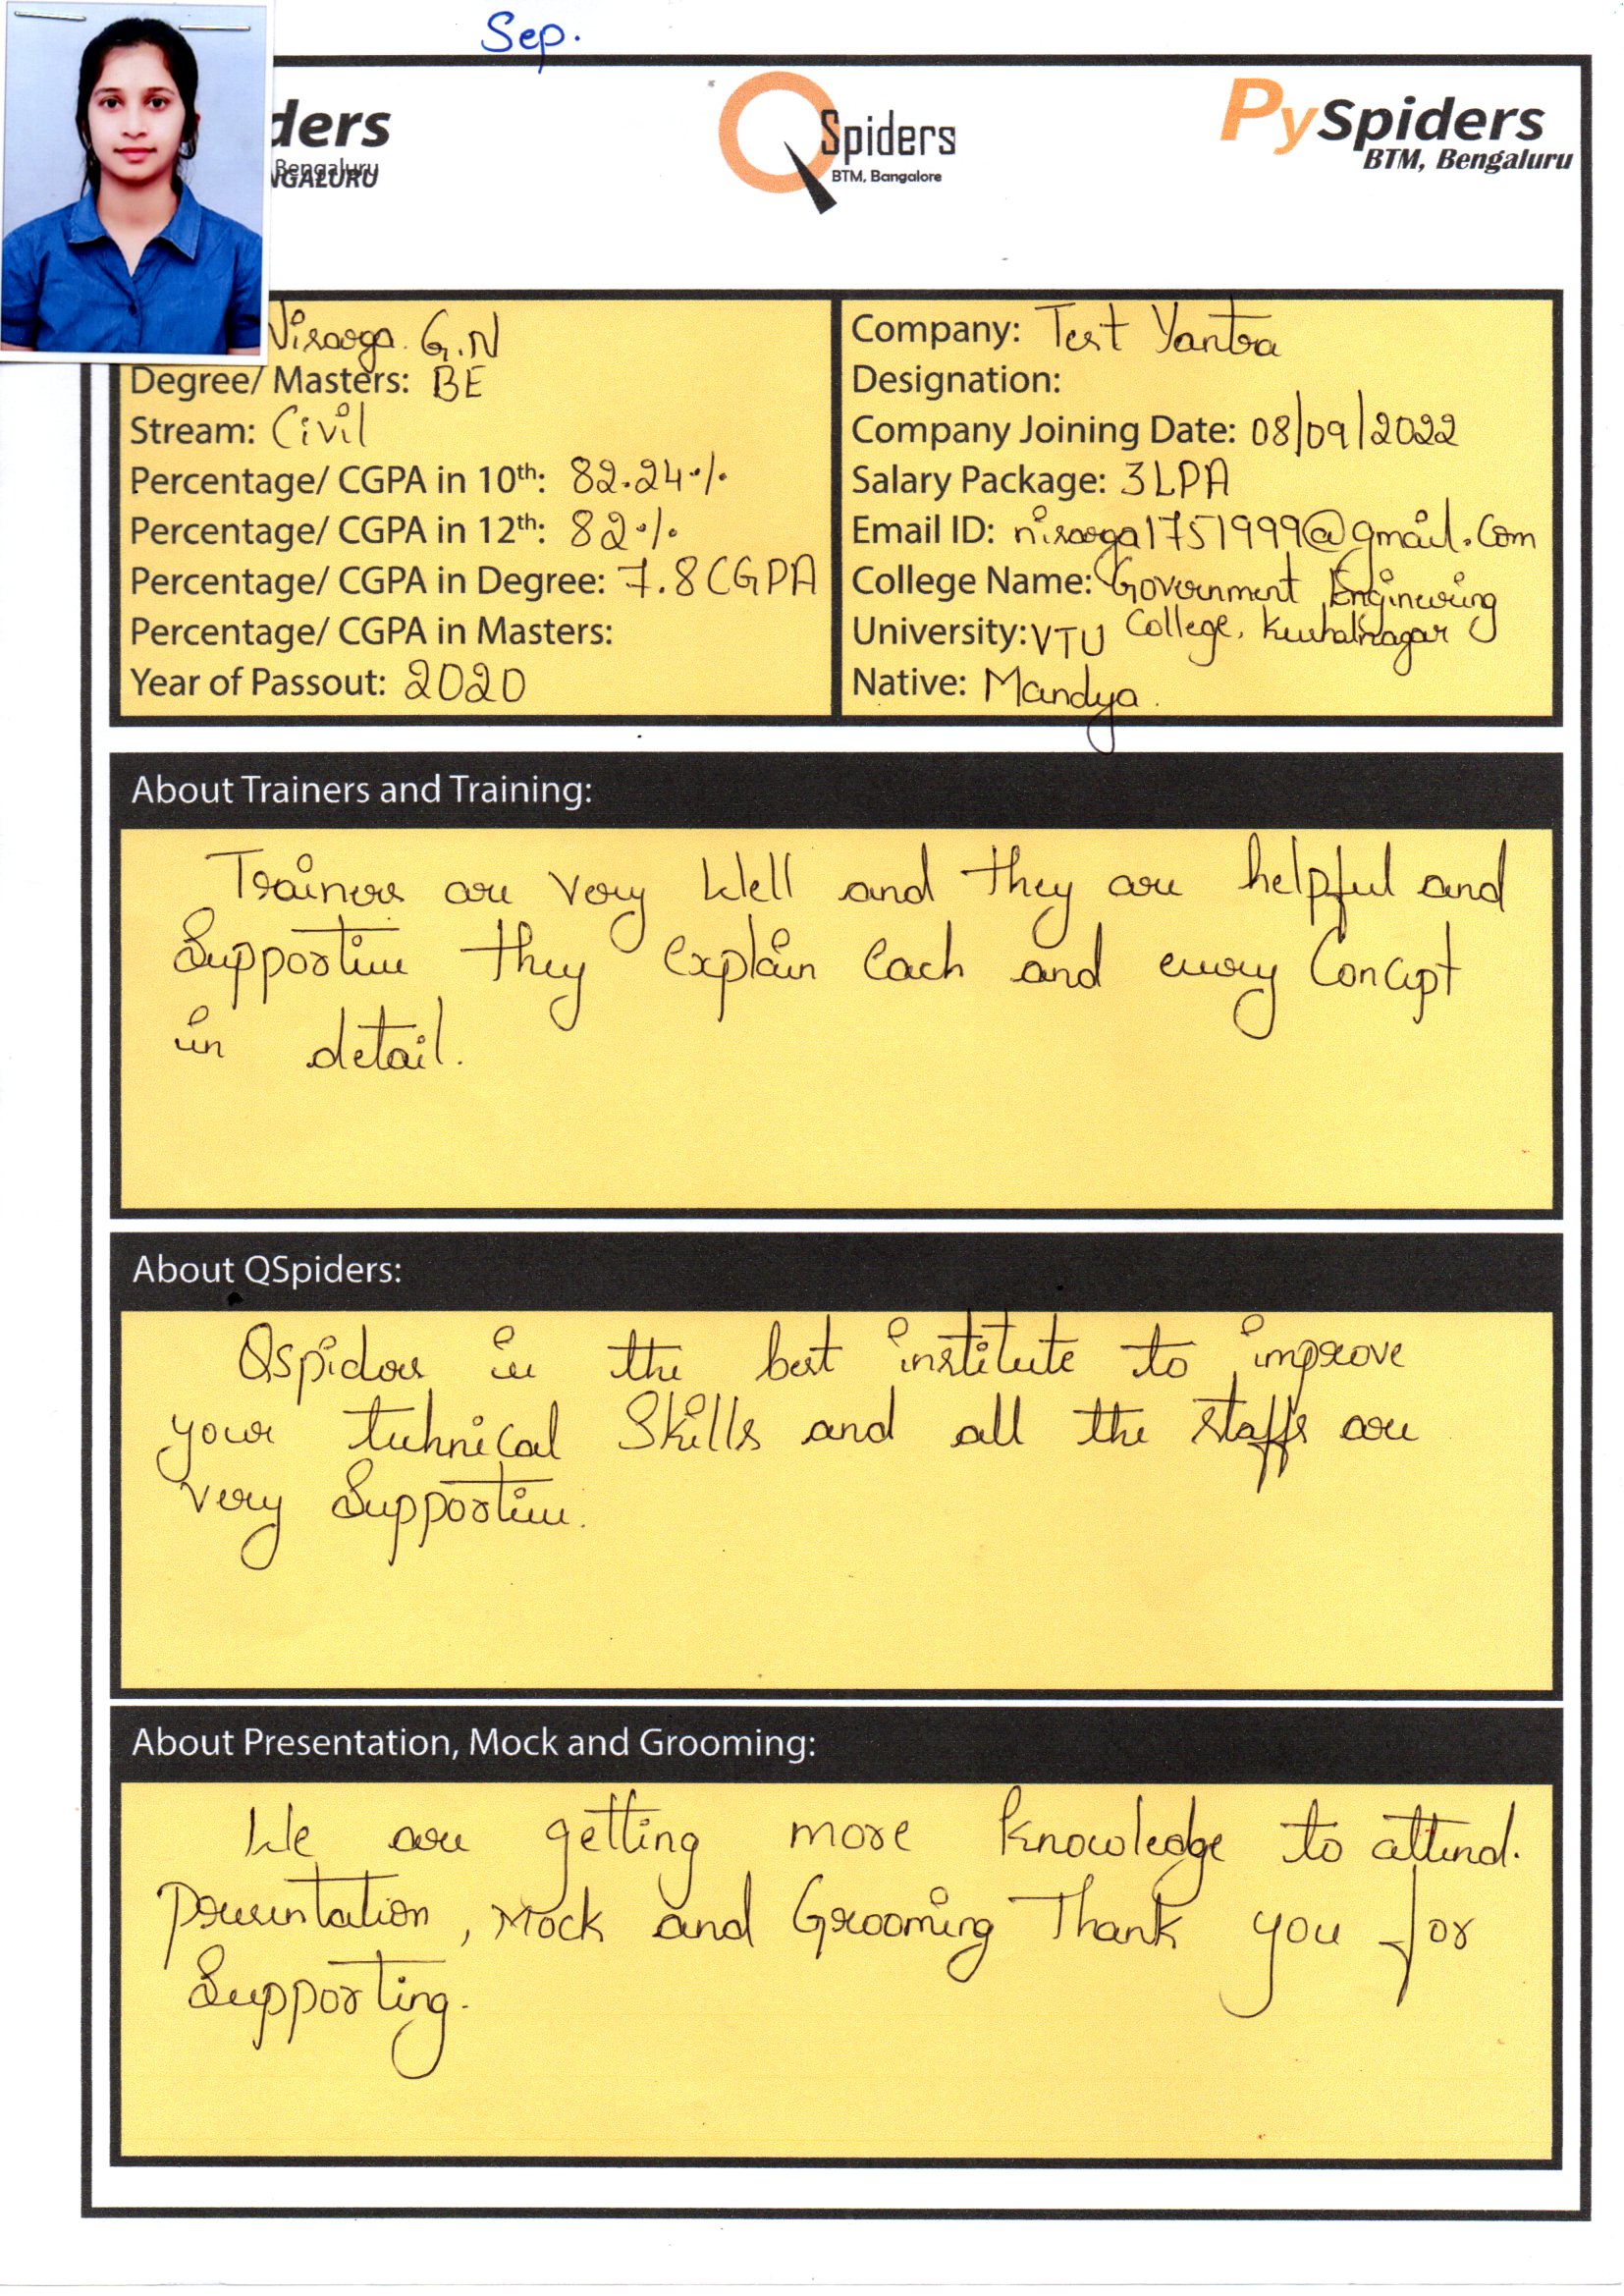 Sep.
ders
Bengaluru
NGALURU
QSpiders
BTM, Bangalore
PySpiders
BTM, Bengaluru
Nisarga. G.N
Degree/ Masters: BE
Stream: Civil
Percentage/ CGPA in 10th: 82.24%
Percentage/ CGPA in 12th: 82%
Percentage/ CGPA in Degree: 7.8 CGPA
Percentage/ CGPA in Masters:
Year of Passout: 2020
Company: Test Yantra
Designation:
Company Joining Date: 08/09/2022
Salary Package: 3LPA
Email ID: nisarga1751999@gmail.com
College Name: Government Engineering
College, Kushalnagar
University: VTU
Native: Mandya.
About Trainers and Training:
Trainers are very Well and they are helpful and
Supportive they explain each and every Concept
in detail.
About QSpiders:
Qspiders is the best institute to improve
your technical Skills and all the staffs are
very Supportive.
About Presentation, Mock and Grooming:
We are getting more knowledge to attend.
Presentation, Mock and Grooming Thank you for
Supporting.